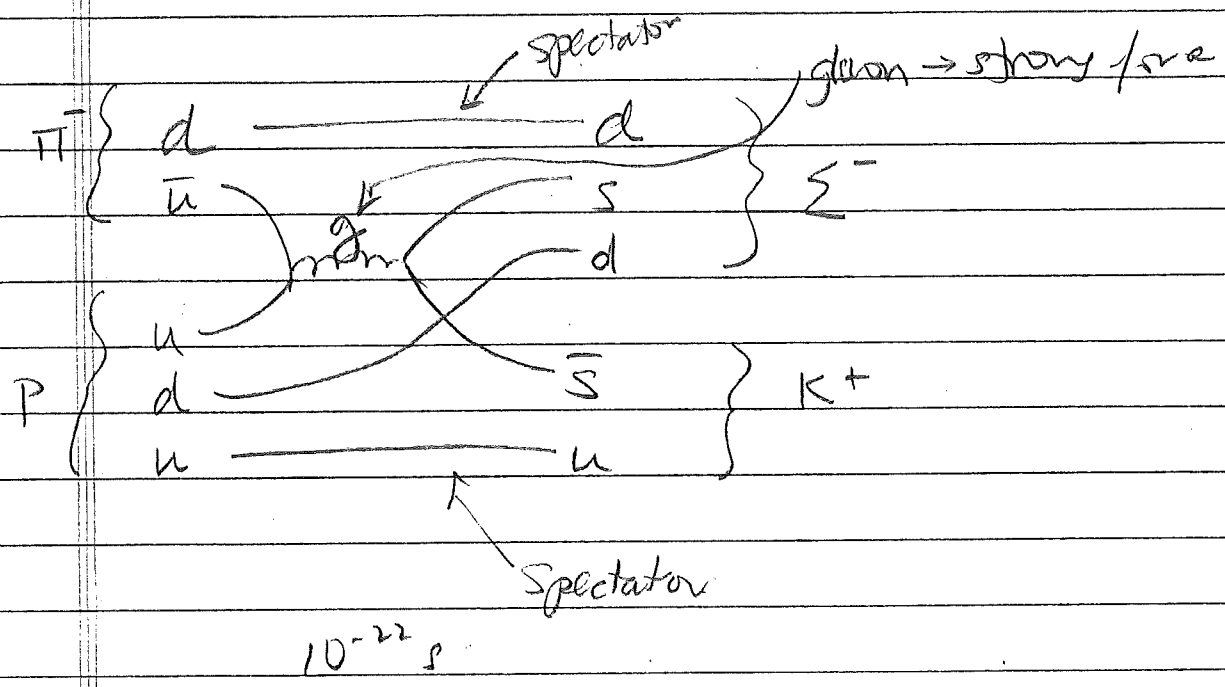 spectator
gluon → strong force
π⁻ { d d
ū s } Σ⁻
g
d
u
P { d s̄ } K⁺
u u
Spectator
10⁻²² s